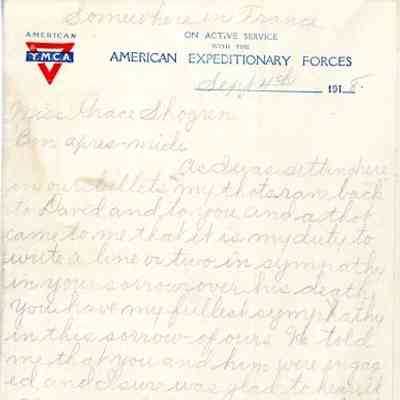 Somewhere in France
AMERICAN
Y.M.C.A
ON ACTIVE SERVICE
WITH THE
AMERICAN EXPEDITIONARY FORCES
Sept 4th 1918
Miss Grace Shogren
Bon apres-midi
As I was sitting here
in our billets my thots ran back
to David and to you and a thot
came to me that it is my duty to
write a line or two in sympathy
in your sorrow over his death
You have my fullest symphathy
in this sorrow of ours. He told
me that you and him were ingag
ed and I sure was glad to hear it